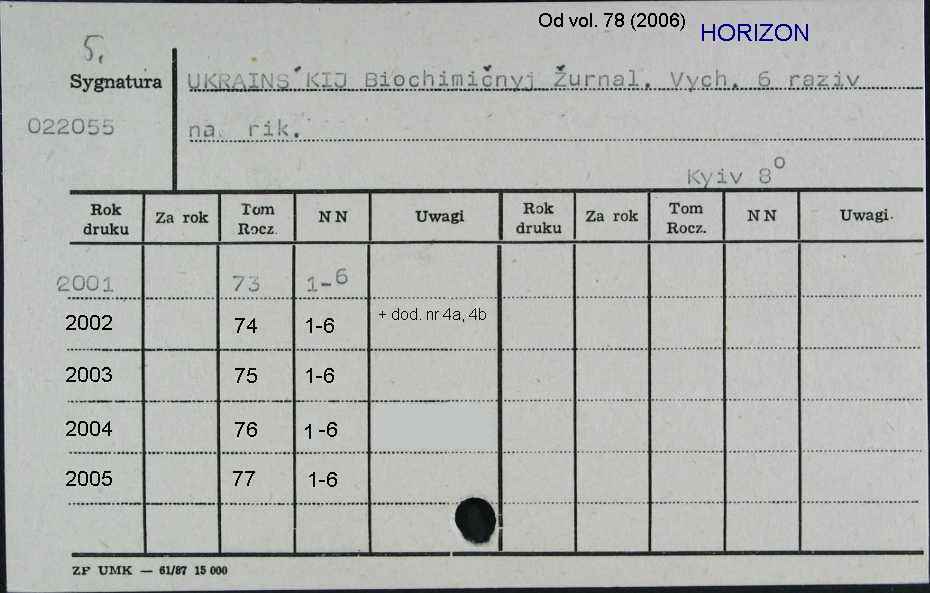 Od vol. 78 (2006) HORIZON
5.
Sygnatura UKRAINS´KIJ Biochimičnyj Žurnal. Vych. 6 raziv
022055 na rik.
Kyiv 8°
Rok druku Za rok Tom Rocz. NN Uwagi Rok druku Za rok Tom Rocz. NN Uwagi
2001 73 1-6
2002 74 1-6 + dod. nr 4a, 4b
2003 75 1-6
2004 76 1-6
2005 77 1-6
ZF UMK — 61/87 15 000